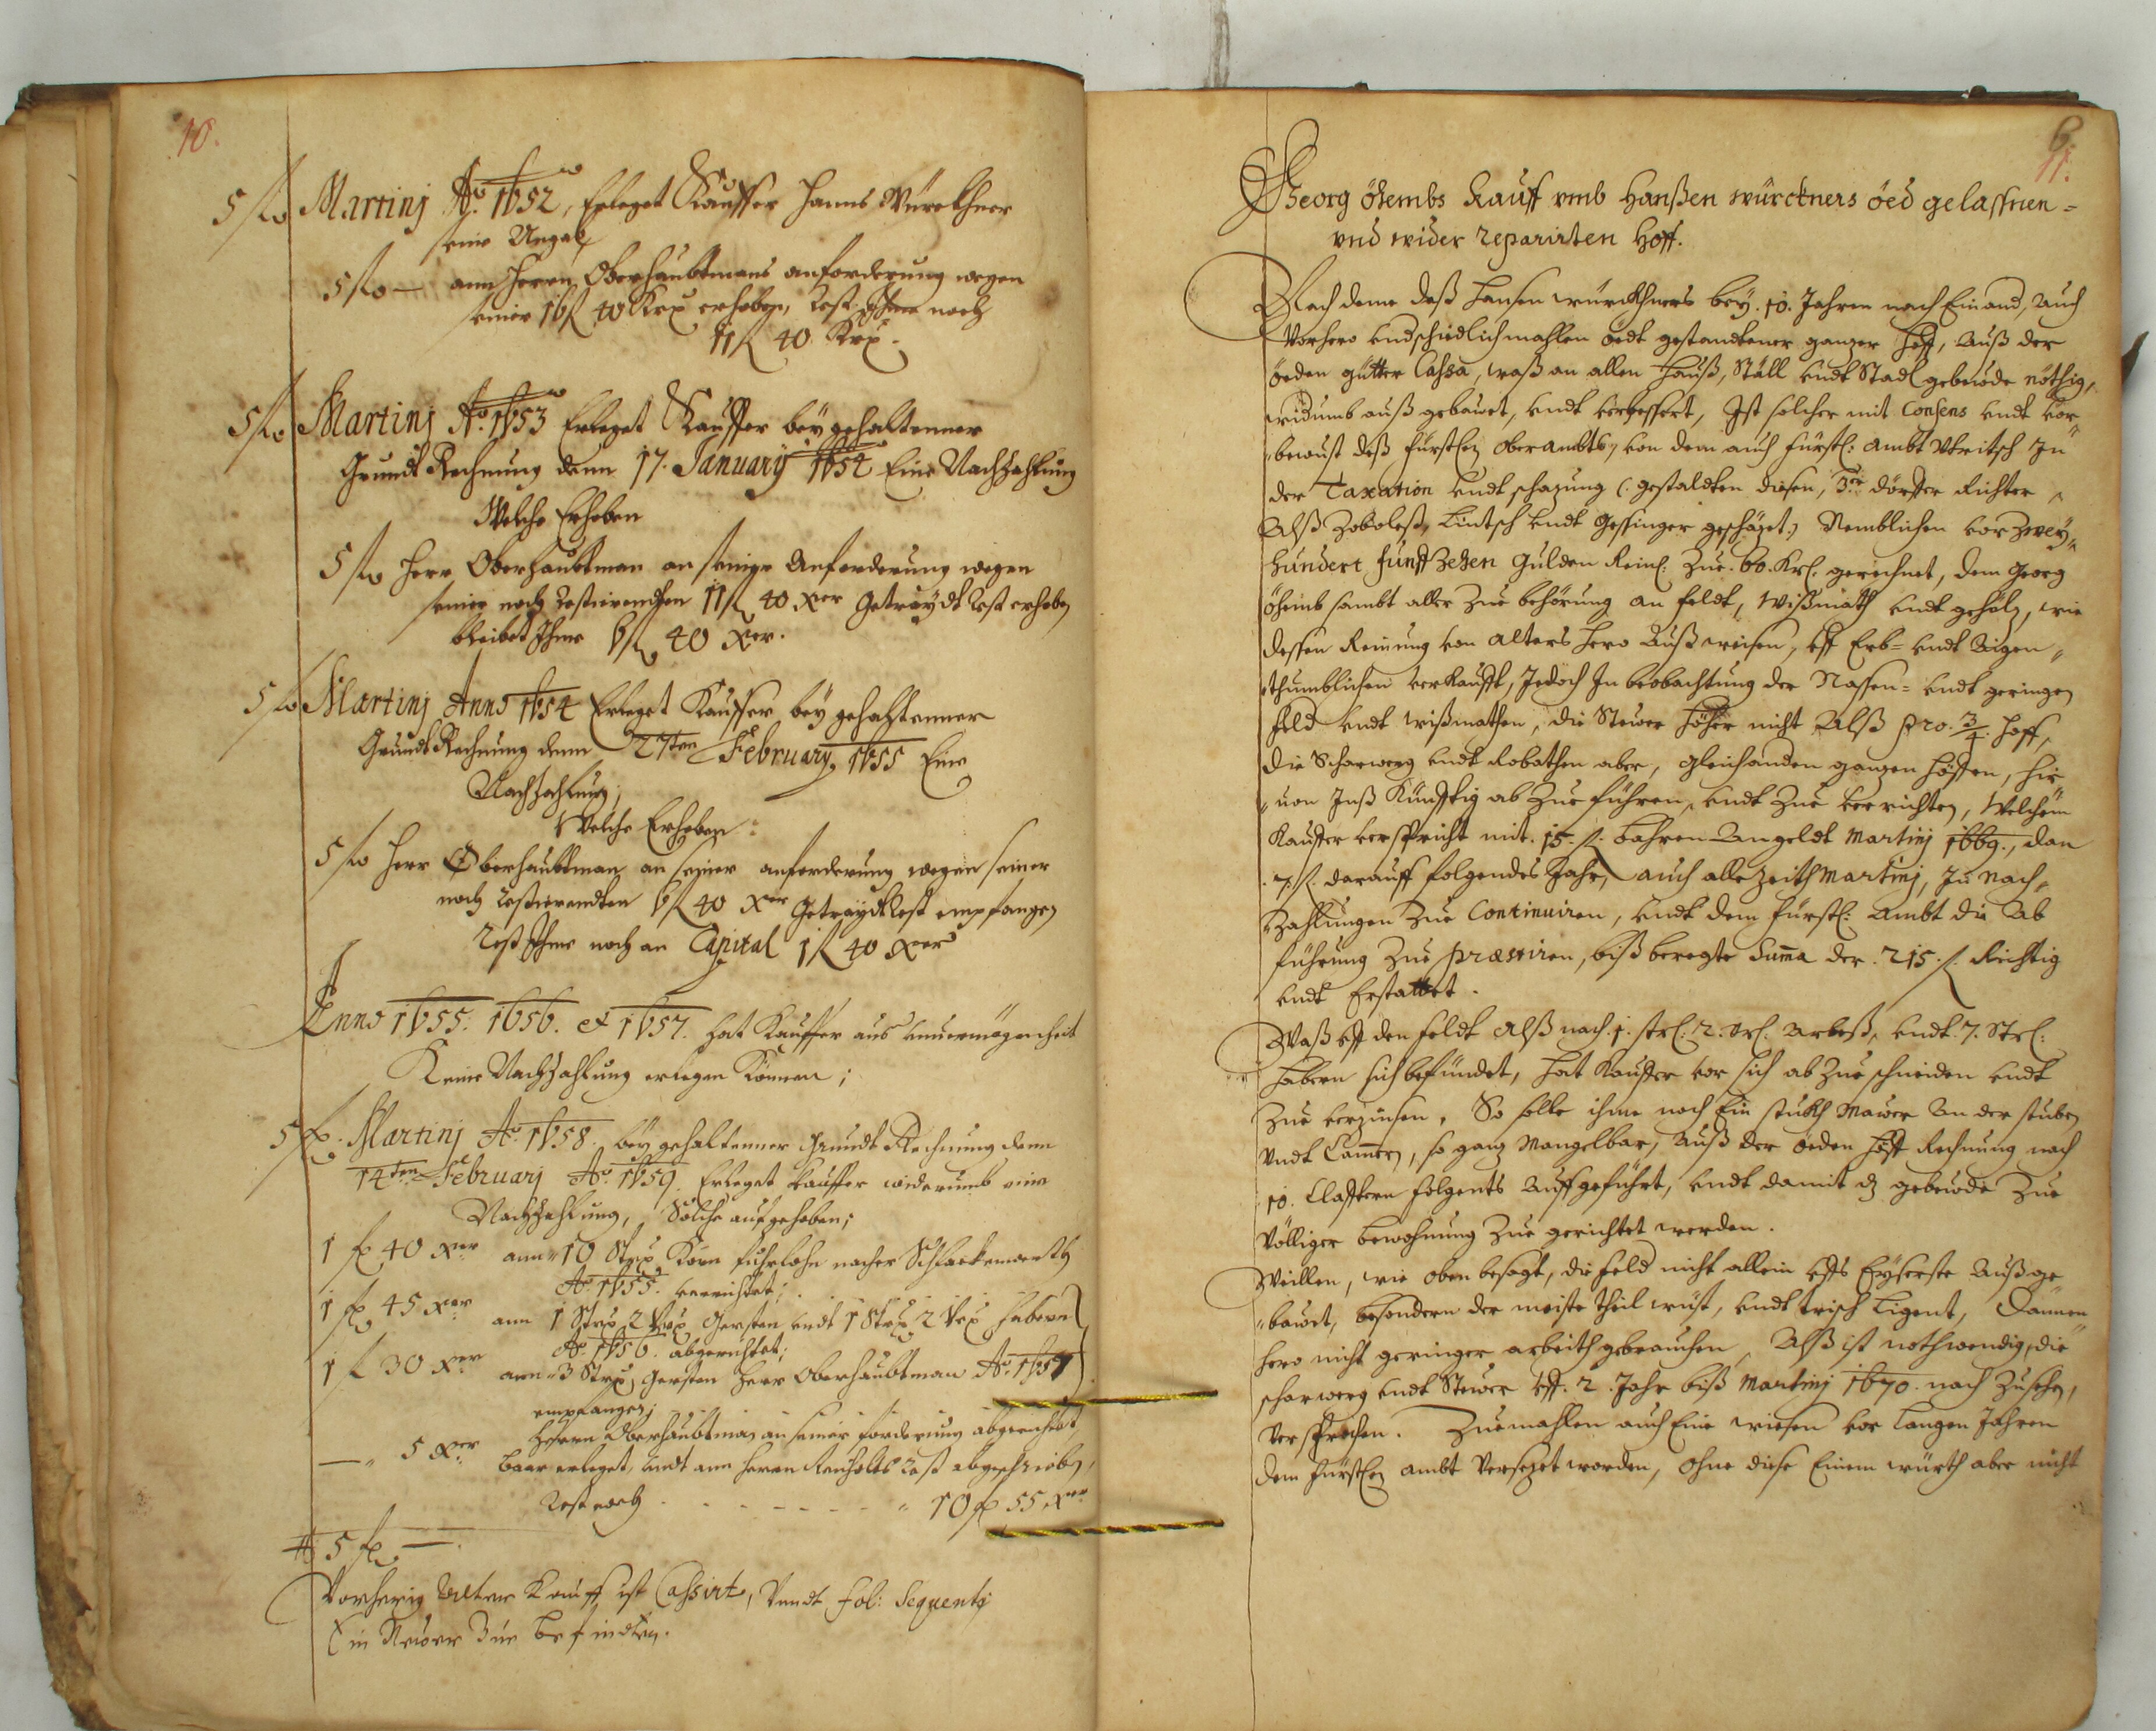 10.
5 fl Martinj Ao. 1652, Erleget Kauffer Hanns Würckhner
seine Angab
5 fl — ann Herrn Oberhaubtmans anforderung wegen
seiner 16 fl 40 Krx erhoben, Rest Ihme noch
11 fl 40 Krx.
5 fl Martinj Ao. 1653 Erleget Kauffer bey gehaltenner
Grundt Rechnung denn 17. January 1654 Eine Nachzahlung
Welche Erhoben
5 fl Herr Oberhaubtman an seiner Anforderung wegen
seiner noch restierendten 11 fl 40 Xer Getraydt Rest erhoben
bleibet Ihme 6 fl 40 Xer.
5 fl Martinj Anno 1654 Erleget Kauffer bey gehaltenner
Grundt Rechnung denn 27ten February 1655 Eine
Nachzahlung,
Welche Erhoben:
5 fl Herr Oberhaubtman an seiner anforderung wegen seiner
noch restierendten 6 fl 40 Xer Getraydt Rest empfangen
Rest Ihme noch an Capital 1 fl 40 Xer
Anno 1655. 1656. et 1657. hat Kauffer aus unuermögenheit
Keine Nachzahlung erlegen Können;
5 fl. Martinj Ao. 1658. bey gehaltenner Grundt Rechnung denn
14ten Februarj Ao. 1659. Erleget Kauffer widerumb eine
Nachzahlung, Solche aufgehoben;
1 fl 40 Xer ann 10 Strx Korn fuhrlohn nacher Schlackenwerth
Ao. 1655. verrichtet;
1 fl 45 Xer ann 1 Strx 2 Vrx Gersten undt 1 Strx 2 Vrx Habern
Ao. 1656. abgerichtet;
1 fl 30 Xer ann 3 Strx Gersten Herr Oberhaubtman Ao. 1657
empfangen;
Herrn Oberhaubtman an seiner forderung abgerichtet
— 5 Xer baar erleget, undt ann Herrn Rest abgeschrieben,
Rest noch - - - - - - - 10 fl 55 Xer
5 fl —.
Vorherig Alter Kauff ist Cassirt, Vundt fol: Sequentj
Ein Neuer Zue befindten.
6.
11.
Georg öhembs Kauff vmb Hanßen würckners öed gelassnen=
vnd wider reparirten Hoff.
Nach deme deß Hansen würckhners bey. 10. Jahren nach Einand, auch
Vorhero undschiedlichmahlen oedt gestandtener ganzer Hoff, Auß der
öeden gütter Cassa, waß an allen Hauß, Ställ undt Stadl gebeude nöthig,
widumb auß gebauet, undt verbessert, Ist solcher mit Consens undt vor
bewust deß fürstlen Oberambts, von dem auch fürstl: Ambt In
der Taxation undt schazung (: gestaldten disen, 3er dörffer Richter
Alß Zoboleß, Lintsch undt Gessinger geschäzet:) Nemblichen vor Zwey
hundert funffzehen Gulden Reinl: Zue. 60. Krl: gerechnet, dem Georg
öhemb sambt aller Zue behörung an feldt, Wißmath undt geholz, wie
dessen Reinung von Alters hero Außweisen, vff Erb= undt Aigen
thumblichen verkaufft, Jedoch In beobachtung der Nassen= undt geringen
feld undt wißmathen, die Steuer höher nicht Alß pro. 3/4. hoff,
die Scharwerg undt Robathen aber, gleich anden ganzen höffen, hie
uon Inß Künfftig ab Zue führen, undt Zue verrichten, Welchem
Kauffer verspricht mit. 15. fl. bahren Angeldt Martinj 1669., dan
7. fl. darauff folgendes Jahr, auch alle Zeith Martinj, In Nach
Zahlungen Zue Continuiren, undt dem fürstl: Ambt die Ab
führung Zue præstiren, biß beregte Suma der. 215. fl. Richtig
undt Erstattet.
Waß vff den feldt Alß nach. 1. strl: 2. vrl: Arbeß, undt. 7. Strl:
habern sich befindet, hat Kauffer vor sich ab Zue schneiden undt
Zue verzinsen. So solle ihme noch Ein stukh Mauer An der stuben
vndt Camern, so ganz Mangelbar, Auß der öeden höff Rechnung nach
10. Claftern folgents Auffgeführt, undt damit dz gebeude Zue
völliger bewohnung Zue gerichtet werden.
Weillen, wie oben besagt, die feld nicht allein vffs Eyserste Außge
bauet, besondern der meiste theil wüst, undt trisch Ligent, Dannen
hero nicht geringer arbeith gebrauchen, Alß ist nothwendig, die
scharwerg undt Steuer vff. 2. Jahr biß Martinj 1670. nach Zusehen,
Versprochen. Zuemahlen auch Eine wiesen vor langen Jahren
dem fürstlen Ambt Versezet worden, ohne diese Einem würth aber nicht